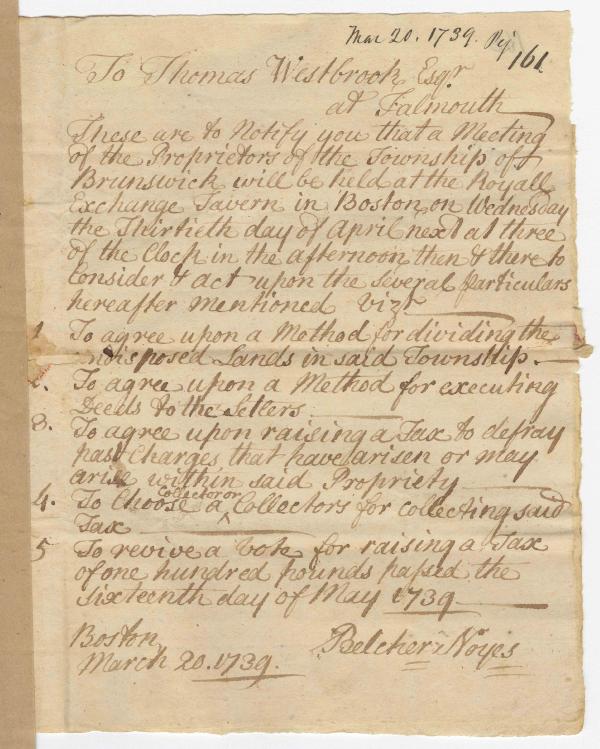 Mar 20. 1739. Pej
161
To Thomas Westbrook Esqr
at Falmouth
These are to Notify you that a Meeting
of the Proprietors of the Township of
Brunswick will be held at the Royall
Exchange Tavern in Boston on Wednesday
the Thirtieth day of April next at three
of the Clock in the afternoon then & there to
Consider & act upon the several particulars
hereafter mentioned vizt
1. To agree upon a Method for dividing the
undisposed Lands in said Township.
2. To agree upon a Method for executing
Deeds to the Setlers
3. To agree upon raising a Tax to defray
past Charges that have arisen or may
arise within said Propriety
4. To Choose a Collector or Collectors for collecting said
Tax
5 To revive a vote for raising a Tax
of one hundred pounds passed the
sixteenth day of May 1739
Boston
March 20. 1739.
Belcher Noyes